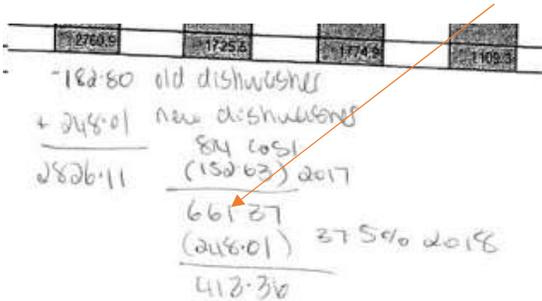 2760.9 1725.6 1774.9 1109.3
-182.80 old dishwasher
+ 248.01 new dishwashers
2826.11
814 cost
(152.63) 2017
661 37
(248.01) 37 5% 2018
413.36